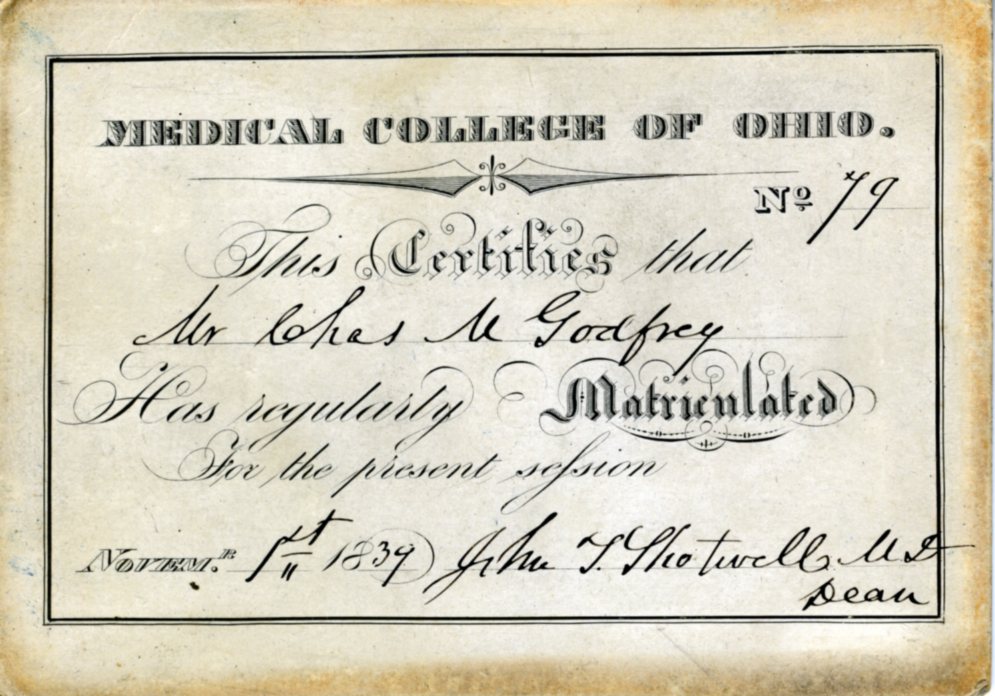 MEDICAL COLLEGE OF OHIO.
No 79
This Certifies that
Mr Chas M Godfrey
Has regularly Matriculated
For the present seſsion
NOVEMR. 1st 1839 John T. Shotwell M D
Dean